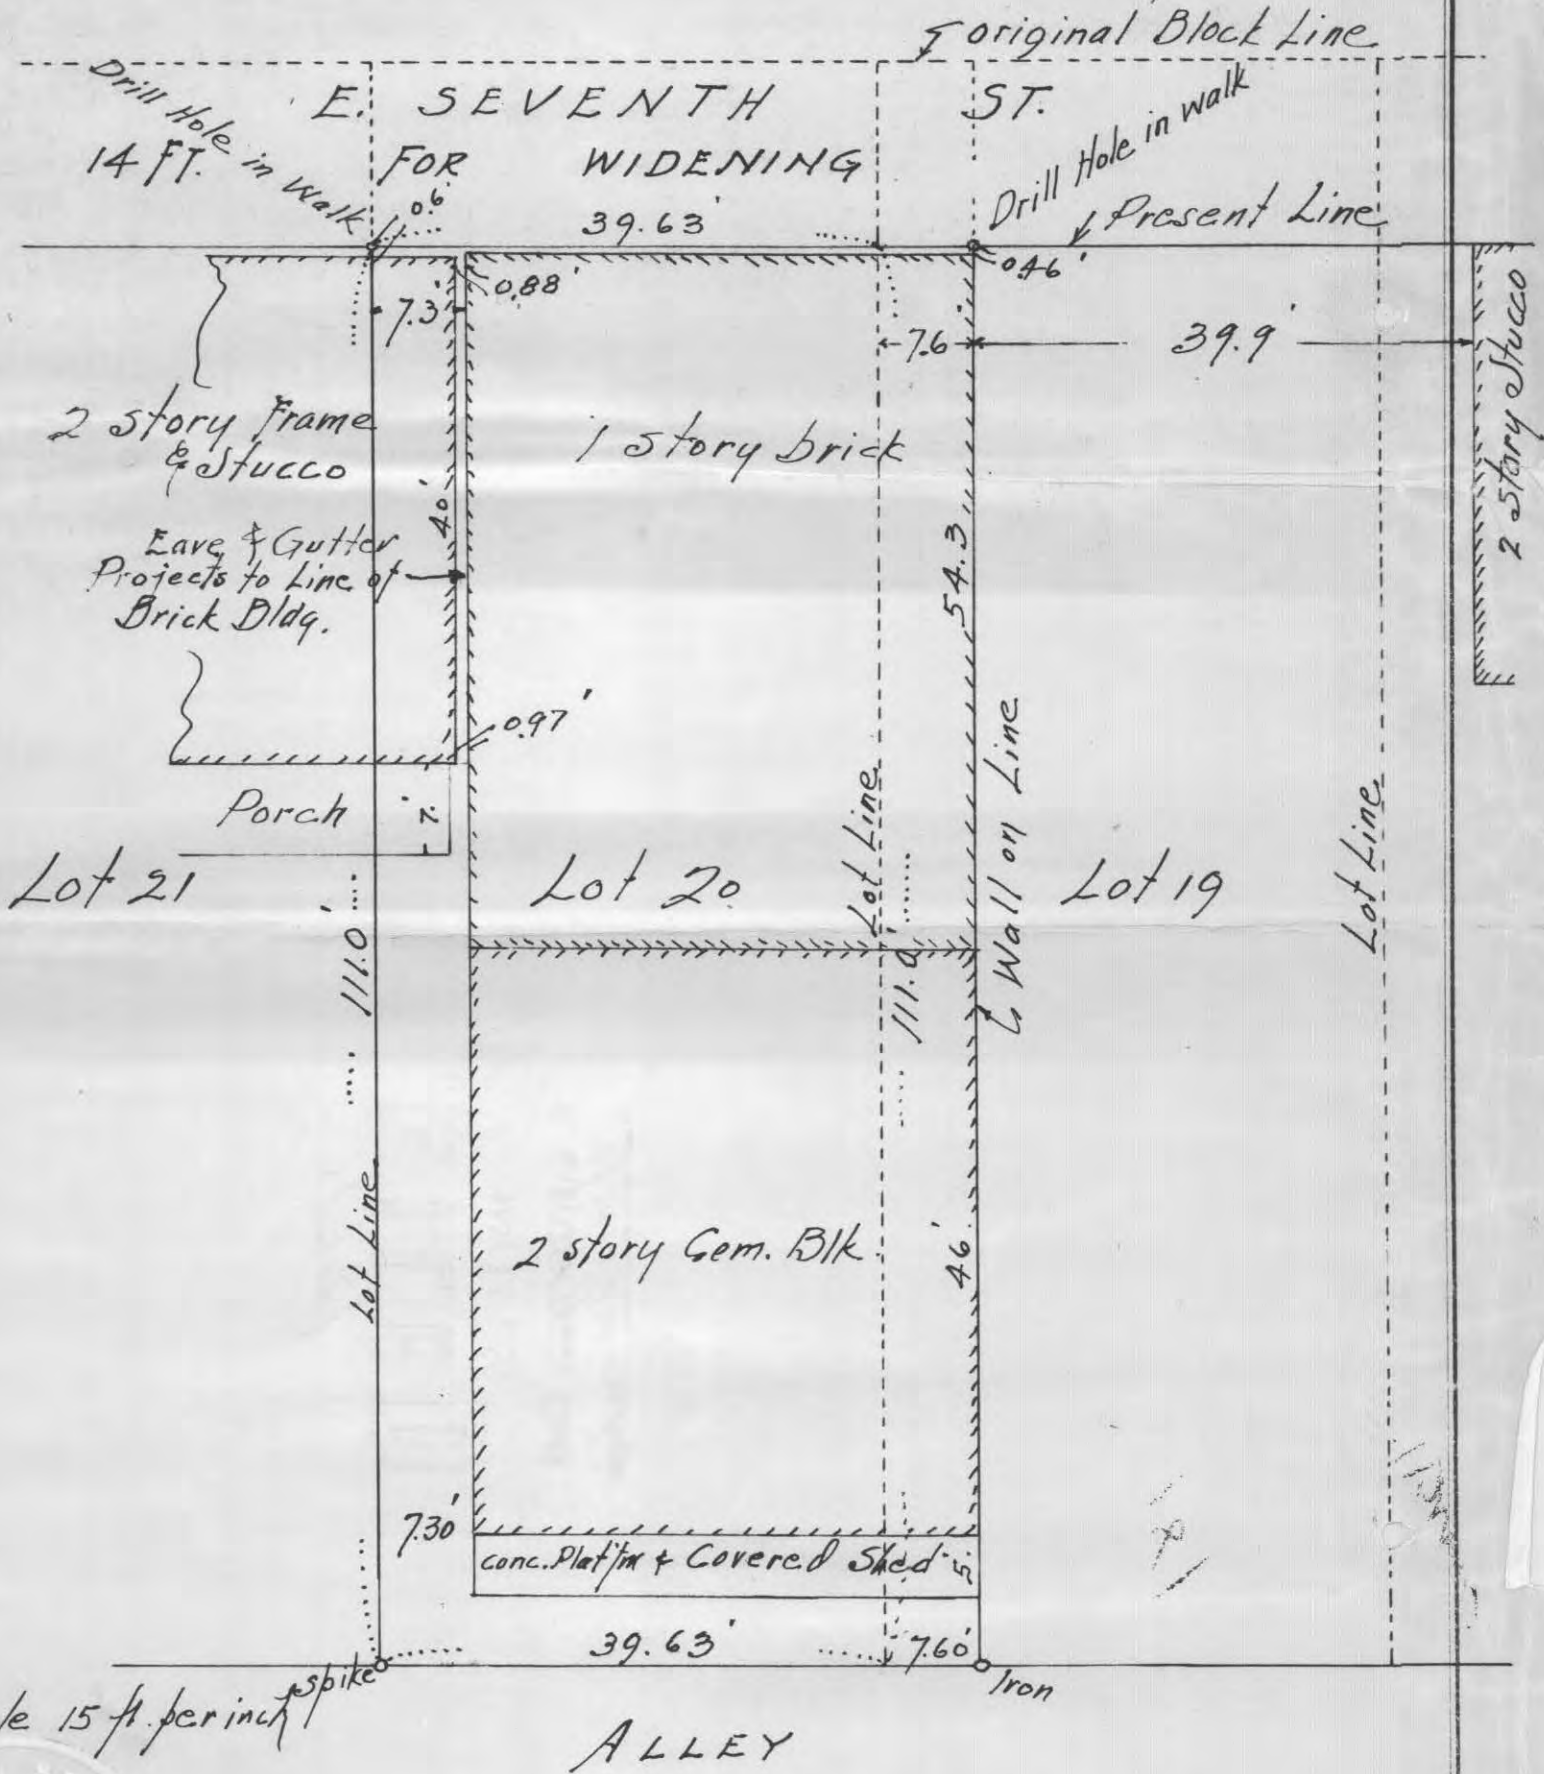 original Block Line
Drill Hole in Walk
E. SEVENTH ST.
14 FT. FOR WIDENING
Drill Hole in walk
0.6'
39.63'
Present Line
0.88'
0.46'
7.3'
7.6
39.9'
2 Story Stucco
2 story Frame
& Stucco
1 story brick
40'
Eave & Gutter
Projects to Line of
Brick Bldg.
54.3
0.97'
Porch
7.'
Lot Line
Wall on Line
Lot Line
Lot 21
Lot 20
Lot 19
111.0'
111.0'
Lot Line
2 story Cem. Blk.
46'
7.30'
conc. Platf'm & Covered Shed
5.'
39.63'
7.60'
spike
Iron
15 ft. per inch
ALLEY